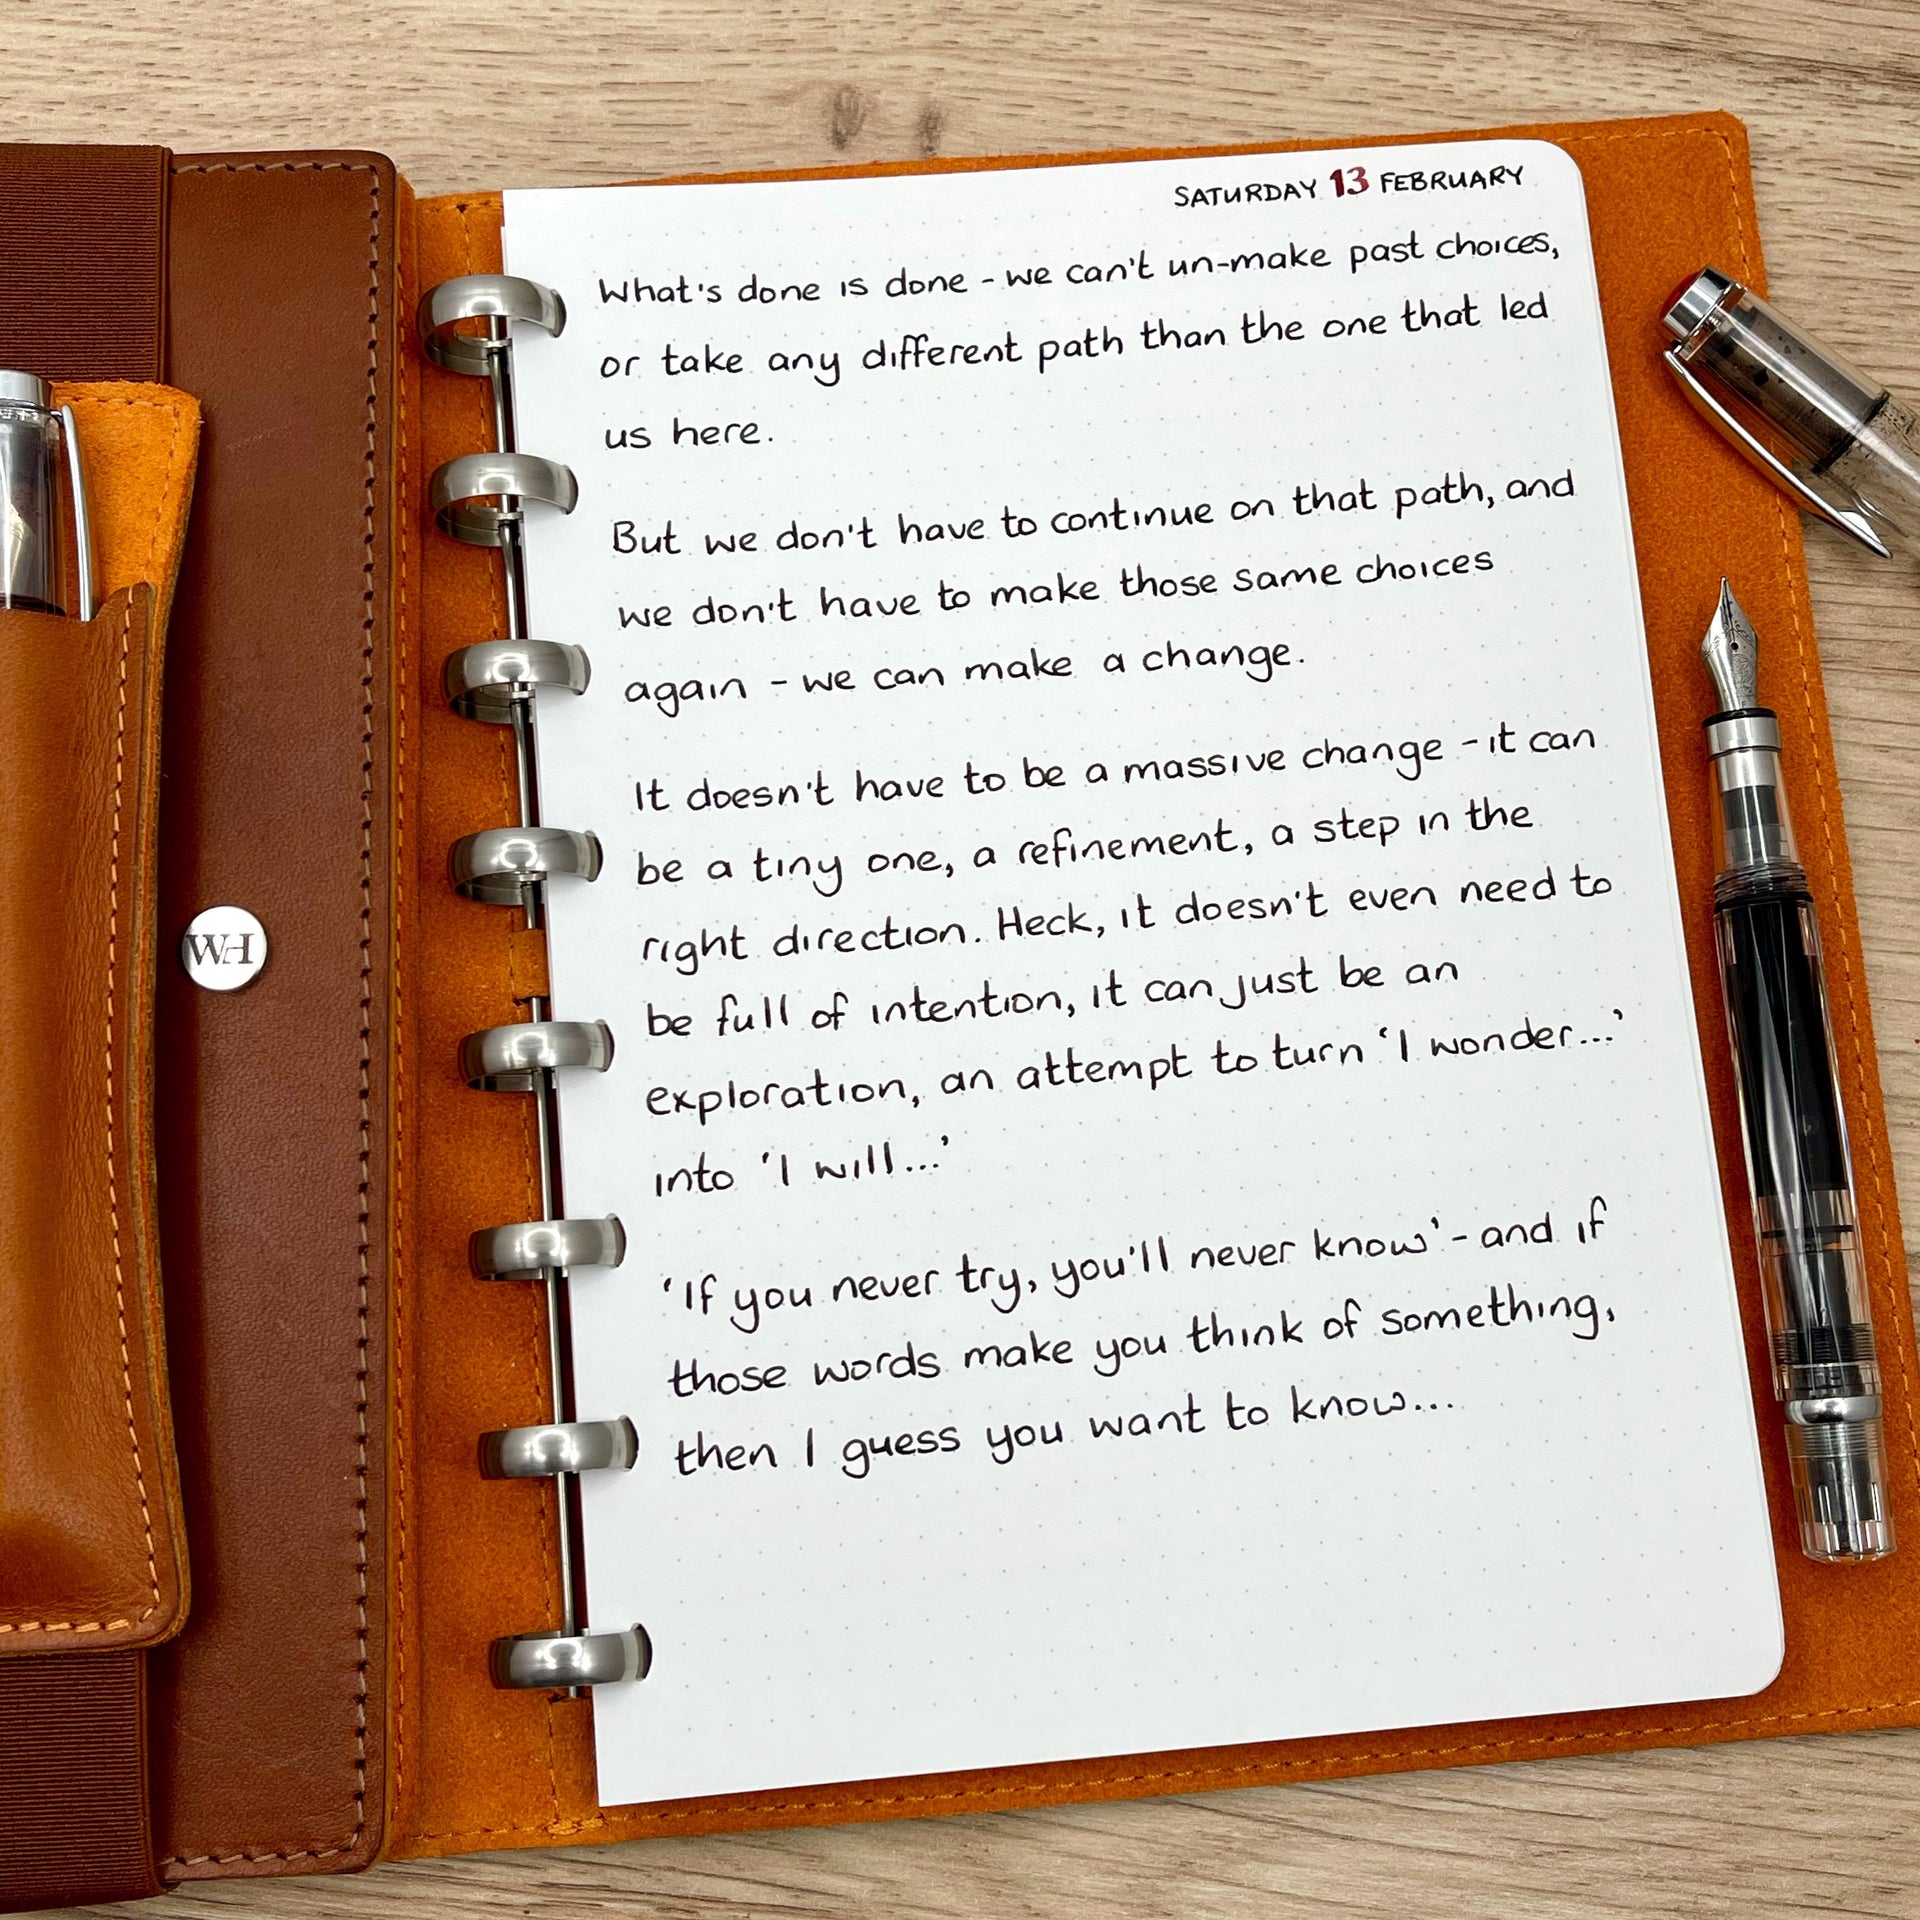 SATURDAY 13 FEBRUARY
What's done is done - we can't un-make past choices,
or take any different path than the one that led
us here.
But we don't have to continue on that path, and
we don't have to make those same choices
again - we can make a change.
It doesn't have to be a massive change - it can
be a tiny one, a refinement, a step in the
right direction. Heck, it doesn't even need to
be full of intention, it can just be an
exploration, an attempt to turn 'I wonder...'
into 'I will...'
'If you never try, you'll never know' - and if
those words make you think of something,
then I guess you want to know...
WH